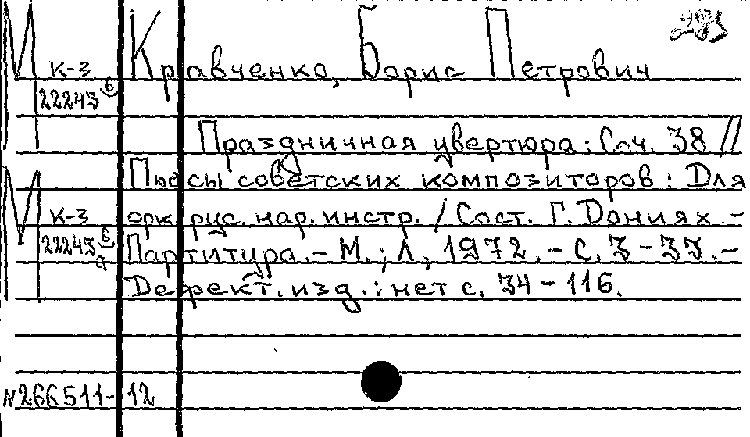 Кравченко, Борис Петрович
М к-3
22243 б
Праздничная увертюра: Соч. 38 //
Пьесы советских композиторов: Для
М к-3 орк. рус. нар. инстр. / Сост. Г. Дониях. -
22243 Партитура. - М.; Л., 1972. - С. 3-33. -
Дефект. изд.: нет с. 34-116.
№266511-12